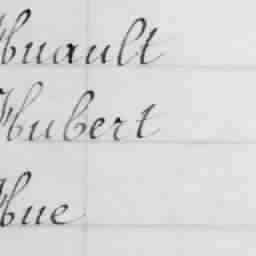 Huault
Hubert
Hue